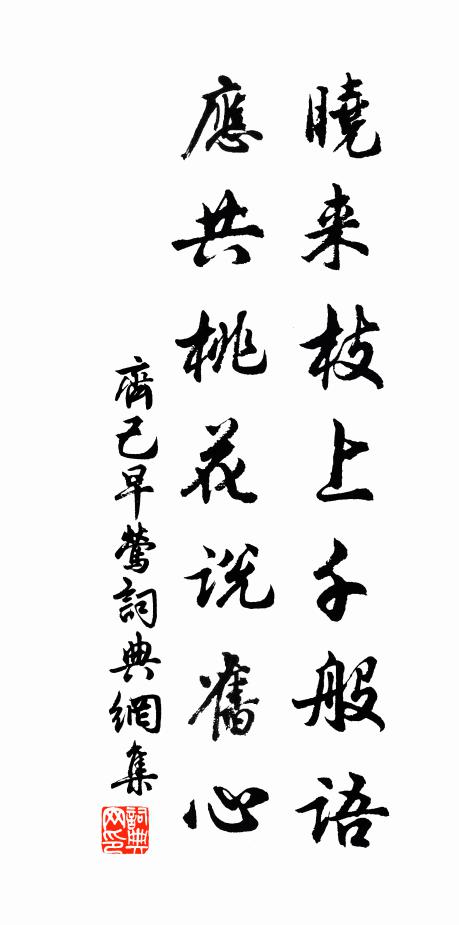 曉来枝上千般語
應共桃花説舊心
齊己早鶯詞典網集
詞典
网印